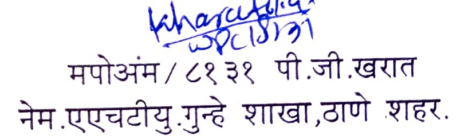 मपोअंम/ ८१३१ पी.जी.खरात
नेम.एएचटीयु.गुन्हे शाखा,ठाणे शहर.